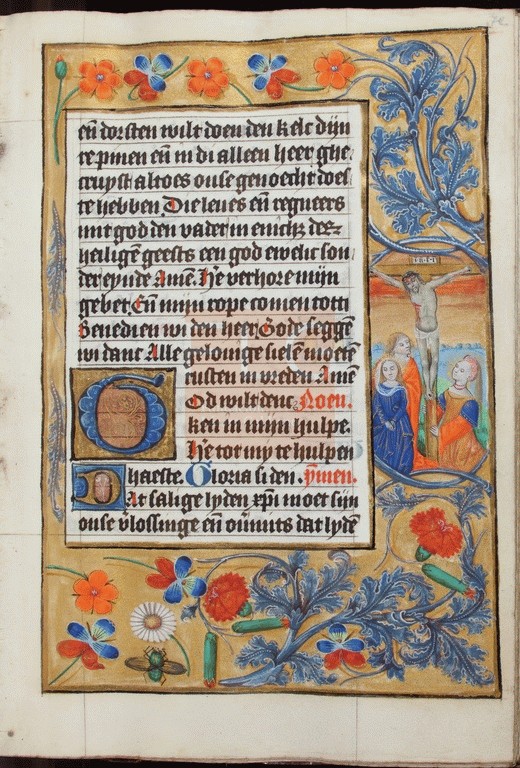 eñ dorsten wilt doen den kelc dijn
re pinen eñ in di alleen heer ghe
cruyst altoes onse genoecht doet
te hebben. Die leues eñ regneers
mit god den vader in enich; des
heiligē geests een god ewelic son
der eynde Amē. He verhore mijn
gebet. Eñ mijn rope comen totti
Benedien wi den heer. Gode seggē
wi danc Alle geloinge sielē moetē
rusten in vreden. Amē
God wilt denc. Noen.
ken in mijn hulpe.
He tot my te hulpen
haeste. Gloria si den. p̄men.
Dat salige lyden xp̄i moet sijn
onse v̄lossinge eñ oūmits dat lydē
I·N·R·I